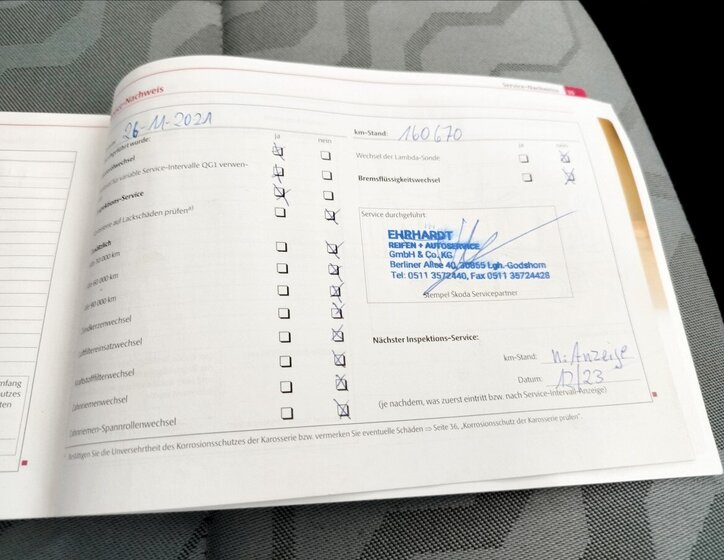 Service-Nachweise
-Nachweis
26-11-2021
km-Stand: 160670
wurde:
ja nein
ja nein
wechsel
für variable Service-Intervalle QG1 verwen-
Wechsel der Lambda-Sonde
Inspektions-Service
Bremsflüssigkeitswechsel
auf Lackschäden prüfen
Service durchgeführt
EHRHARDT
REIFEN + AUTOSERVICE
GmbH & Co. KG
Berliner Allee 40, 30855 Lgh.-Godshorn
Tel: 0511 3572440, Fax 0511 35724428
Stempel Skoda Servicepartner
Zusätzlich
000 km
60 000 km
40 000 km
Zündkerzenwechsel
Luftfiltereinsatzwechsel
Kraftstofffilterwechsel
Zahnriemenwechsel
Zahnriemen-Spannrollenwechsel
Nächster Inspektions-Service:
km-Stand: n. Anzeige
Datum: 12/23
(je nachdem, was zuerst eintritt bzw. nach Service-Intervall-Anzeige)
Bestätigen Sie die Unversehrtheit des Korrosionsschutzes der Karosserie bzw. vermerken Sie eventuelle Schäden ⇒ Seite 36, „Korrosionsschutz der Karosserie prüfen".